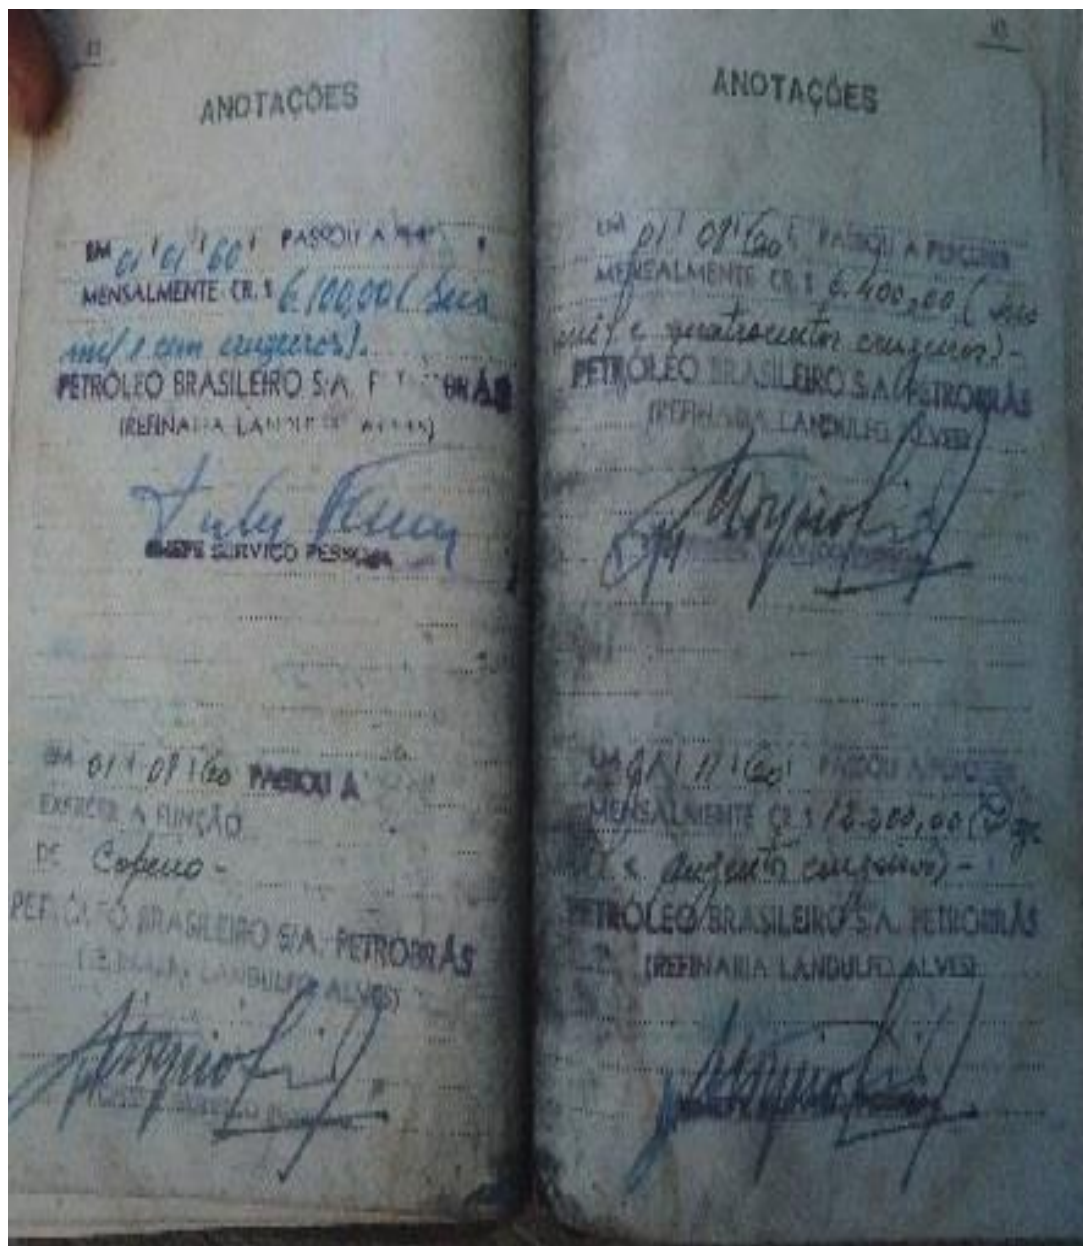 ANOTAÇÕES
EM 01/01/60 PASSOU A
MENSALMENTE CR.$ 6.100,00 (Seis
mil e cem cruzeiros).
PETRÓLEO BRASILEIRO S.A. BRÁS
(REFINARIA
CHEFE SERVIÇO PESSOAL
EM 01/08/60 PASSOU A
EXERCER A FUNÇÃO
DE Copeiro-
PETRÓLEO BRASILEIRO S/A. PETROBRÁS
LANDULFO ALVES)
ANOTAÇÕES
EM 01/08/60 PASSOU A PERCEBER
MENSALMENTE CR.$ 6.400,00 (seis
mil e quatrocentos cruzeiros)-
PETRÓLEO BRASILEIRO S.A. PETROBRÁS
(REFINARIA LANDULFO ALVES)
EM 01/11/60 PASSOU A PERCEBER
MENSALMENTE CR.$ 12.200,00
e duzentos cruzeiros)-
PETRÓLEO BRASILEIRO S/A. PETROBRÁS
(REFINARIA LANDULFO ALVES)